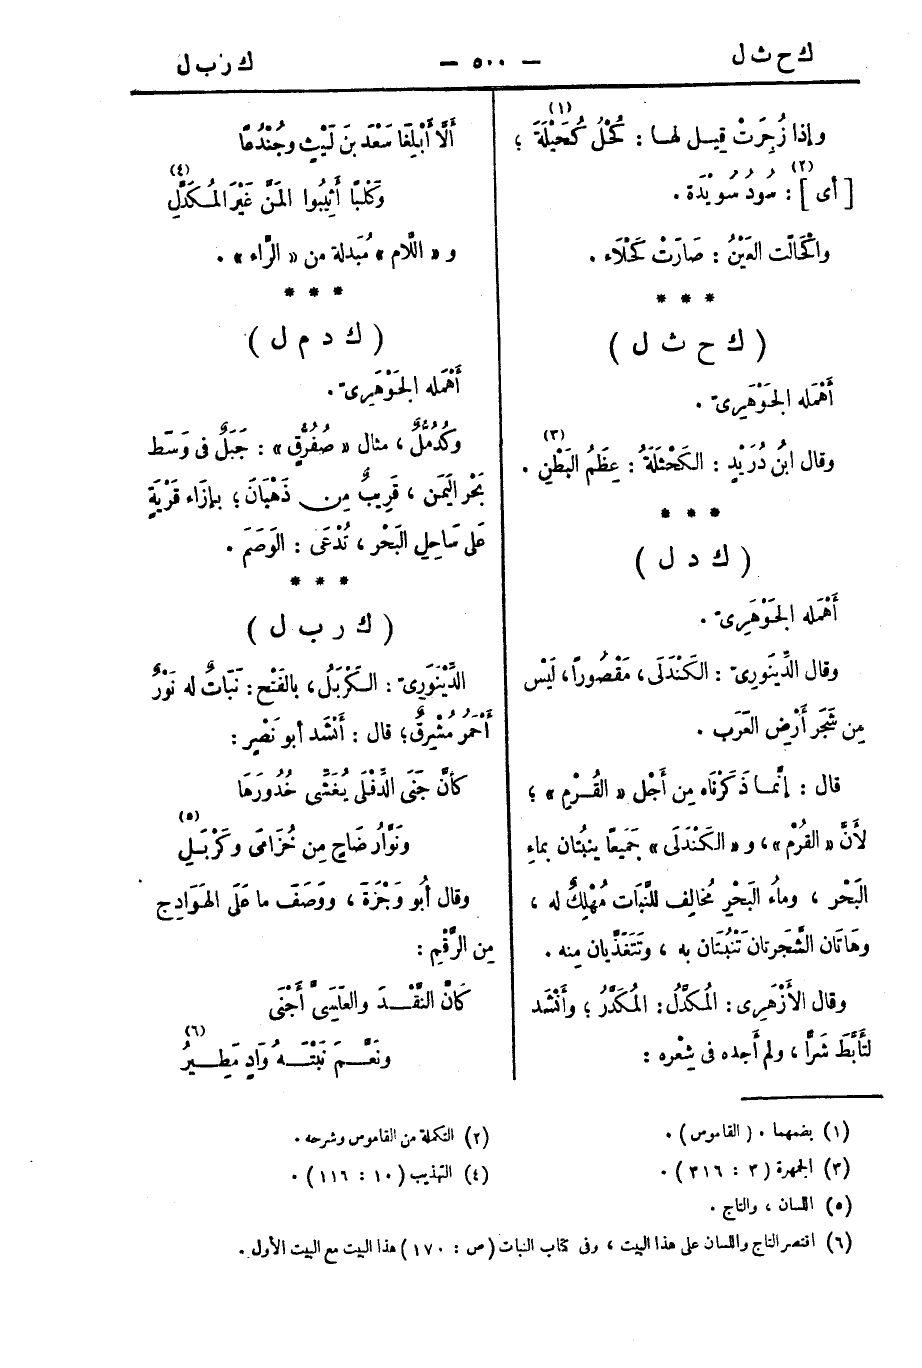 ك ح ث ل
— ٥٠٠ —
ك ر ب ل
وإذا زُجِرَتْ قيل لها : كُحْلُ كُحَيْلَةَ (١) ؛
[ أى ] (٢) : سُودُ سُوَيْدَة .
واكْحَالَّت العَيْنُ : صَارَتْ كَحْلَاء .
* * *
( ك ح ث ل )
أَهْمَله الجَوْهَرِىّ .
وقال ابنُ دُرَيْدٍ : الكَحْثَلَةُ : عِظَمُ البَطْنِ (٣) .
* * *
( ك د ل )
أَهْمَله الجَوْهَرِىّ .
وقال الدِّينَوَرِىّ : الكَنْدَلَى ، مَقْصُورًا ، لَيْس
مِن شَجَر أَرْضِ العَرَب .
قال : إنَّمـا ذَكَرْنَاه مِن أَجْل « القُـرْمِ » ؛
لأَنَّ « القُرْمَ » ، و « الكَنْدَلَى » جَمِيعًا ينبُتان بماءِ
البَحْر ، وماءُ البَحْرِ مُخالِف للنَّبَات مُهْلِكٌ له ،
وهَاتَان الشَّجَرتان تَنْبُتَان به ، وتَتَغَذَّيان مِنه .
وقال الأَزْهَرِى : المُكَدَّلُ : المُكَدَّرُ ؛ وأَنْشَد
لتَأَبَّطَ شَرًّا ، ولم أَجده فى شِعْره :
أَلَّا أَبْلِغَا سَعْدَ بنَ لَيْثٍ وجُنْدُعًا
وَكَلْبًا أَثِيبُوا المَنَّ غَيْرَ المُـكَدَّلِ (٤)
و « اللَّام » مُبدلة من « الرَّاء » .
* * *
( ك د م ل )
أَهْمَله الجَوْهَرِىّ .
وكُدُمُّلٌ ، مثال « صُفُرُّقٍ » : جَبَلٌ فى وَسَط
بَحْر اليَمَن ، قَرِيبٌ مِن ذَهْبَانَ ؛ بـإزَاء قَرْيَةٍ
عَلَى سَاحِلِ البَحْر ، تُدْعَى : الوَصَمَ .
* * *
( ك ر ب ل )
الدِّينَوَرِىّ : الـكَرْبَلُ ، بالفَتْح : نَبَاتٌ له نَوْرٌ
أَحْمَرُ مُشْرِقٌ ؛ قال : أَنْشَد أبو نَصْرٍ :
كأنَّ جَنَى الدِّفْلَى يُغَشِّى خُدُورَهَا
ونَوَّارُ ضَاحٍ مِن خُزَامَى وكَرْبَـلِ (٥)
وقال أَبُو وَجْزَةَ ، ووَصَفَ ما عَلَى الهَوَادِج
مِن الرَّقْمِ :
كَأنَّ النَّقْـــدَ والعَلَسِىَّ أَجْنَى
ونَعَّــمَ نَبْتَــهُ وَادٍ مَطِــيرُ (٦)
(١) بضمهما . ( القاموس ) .
(٢) التكملة من القاموس وشرحه .
(٣) الجمهرة ( ٣ : ٣١٦ ) .
(٤) التهذيب ( ١٠ : ١١٦ ) .
(٥) اللسان ، والتاج .
(٦) اقتصر التاج واللسان على هذا البيت ، وفى كتاب النبات ( ص : ١٧٠ ) هذا البيت مع البيت الأول .